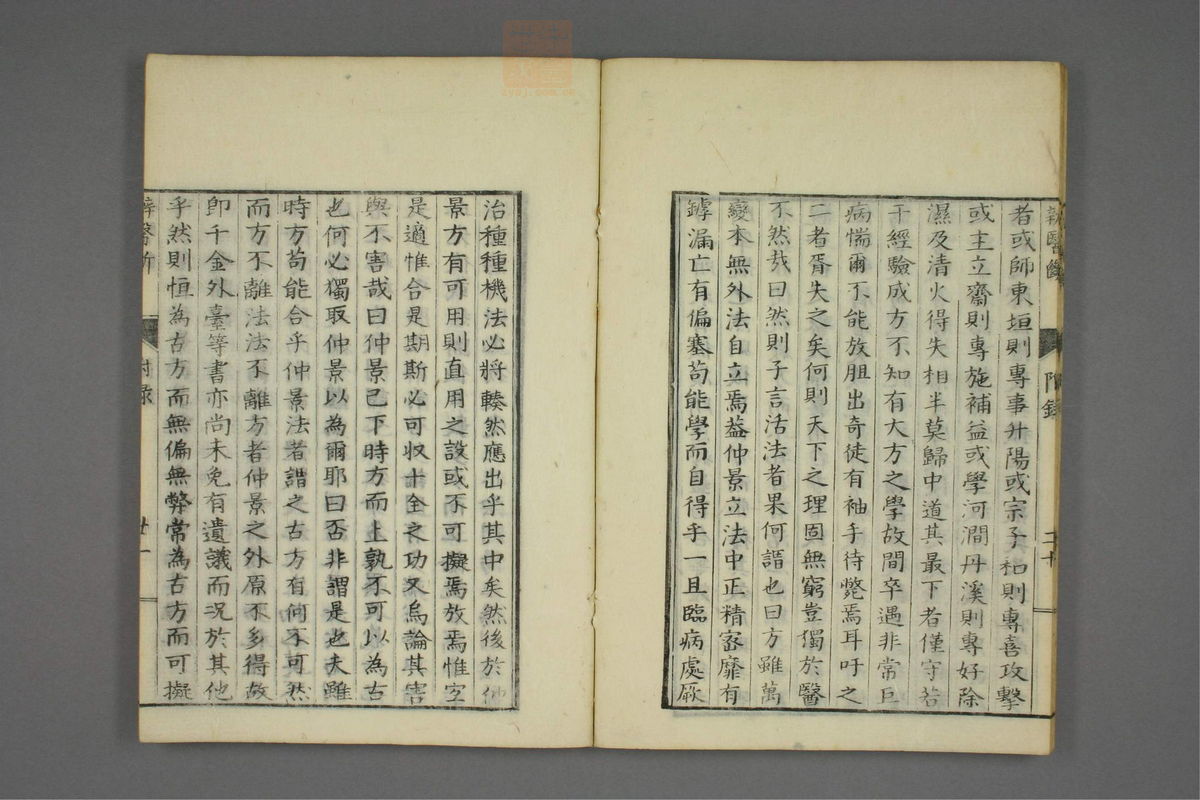 者或師東垣則專事升陽或宗子和則專喜攻擊
或主立齋則專施補益或學河澗丹溪則專好除
濕及清火得失相半莫歸中道其最下者僅守若
干經驗成方不知有大方之學故間卒遇非常巨
病惴爾不能放胆出奇徒有袖手待斃焉耳吁之
二者胥失之矣何則天下之理固無窮豈獨於醫
不然㢤曰然則子言活法者果何謂也曰方雖萬
變本無外法自立焉葢仲景立法中正精密靡有
罅漏亡有偏塞苟能學而自得乎一旦臨病處厥
附錄
治種種機法必將輳然應出乎其中矣然後於仲
景方有可用則直用之設或不可擬焉放焉惟宜
是適惟合是期斯必可收十全之功又烏論其害
與不害哉曰仲景已下時方而上孰不可以為古
也何必獨取仲景以為爾耶曰否非謂是也夫雖
時方苟能合乎仲景法者謂之古方有何不可然
而方不離法法不離方者仲景之外原不多得故
即千金外臺等書亦尚未免有遺議而况於其他
乎然則恒為古方而無偏無弊常為古方而可擬
附錄
廿一